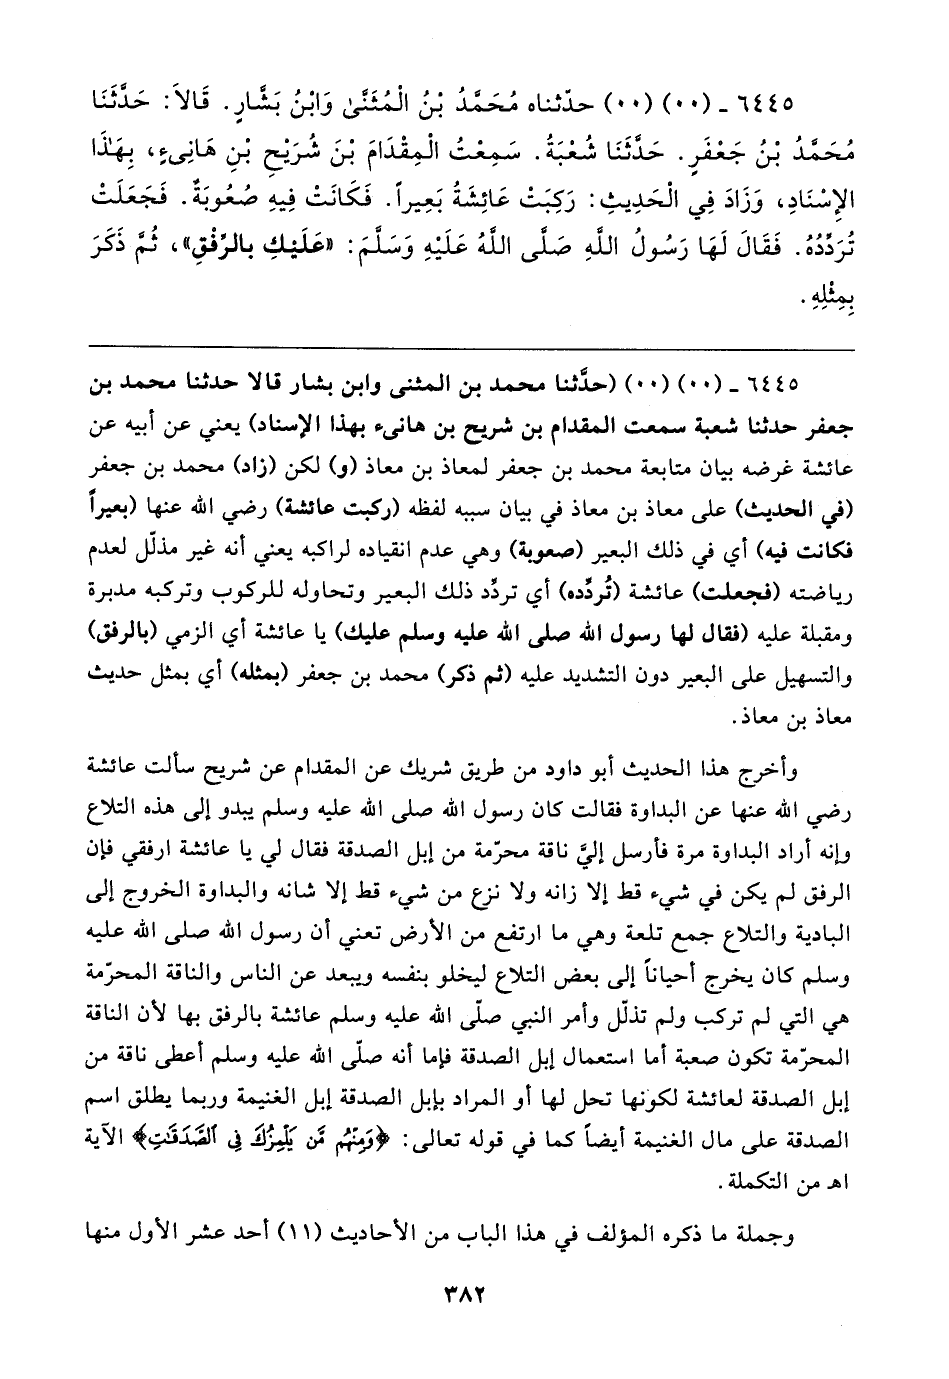 ٦٤٤٥ ـ (٠٠) (٠٠) حدّثناه مُحَمَّدُ بْنُ الْمُثَنَّىٰ وَابْنُ بَشَّارٍ. قَالاَ: حَدَّثَنَا
مُحَمَّدُ بْنُ جَعْفَرٍ. حَدَّثَنَا شُعْبَةُ. سَمِعْتُ الْمِقْدَامَ بْنَ شُرَيْحِ بْنِ هَانِىءٍ، بِهَٰذَا
الإِسْنَادِ، وَزَادَ فِي الْحَدِيثِ: رَكِبَتْ عَائِشَةُ بَعِيراً. فَكَانَتْ فِيهِ صُعُوبَةٌ. فَجَعَلَتْ
تُرَدِّدُهُ. فَقَالَ لَهَا رَسُولُ اللَّهِ صَلَّى اللَّهُ عَلَيْهِ وَسَلَّمَ: «عَلَيْكِ بِالرِّفْقِ»، ثُمَّ ذَكَرَ
بِمِثْلِهِ.
٦٤٤٥ ـ (٠٠) (٠٠) (حدَّثنا محمد بن المثنى وابن بشار قالا حدثنا محمد بن
جعفر حدثنا شعبة سمعت المقدام بن شريح بن هانىء بهذا الإسناد) يعني عن أبيه عن
عائشة غرضه بيان متابعة محمد بن جعفر لمعاذ بن معاذ (و) لكن (زاد) محمد بن جعفر
(في الحديث) على معاذ بن معاذ في بيان سببه لفظه (ركبت عائشة) رضي الله عنها (بعيراً
فكانت فيه) أي في ذلك البعير (صعوبة) وهي عدم انقياده لراكبه يعني أنه غير مذلّل لعدم
رياضته (فجعلت) عائشة (تُردِّده) أي تردِّد ذلك البعير وتحاوله للركوب وتركبه مدبرة
ومقبلة عليه (فقال لها رسول الله صلى الله عليه وسلم عليك) يا عائشة أي الزمي (بالرفق)
والتسهيل على البعير دون التشديد عليه (ثم ذكر) محمد بن جعفر (بمثله) أي بمثل حديث
معاذ بن معاذ.
وأخرج هذا الحديث أبو داود من طريق شريك عن المقدام عن شريح سألت عائشة
رضي الله عنها عن البداوة فقالت كان رسول الله صلى الله عليه وسلم يبدو إلى هذه التلاع
وإنه أراد البداوة مرة فأرسل إليَّ ناقة محرّمة من إبل الصدقة فقال لي يا عائشة ارفقي فإن
الرفق لم يكن في شيء قط إلا زانه ولا نزع من شيء قط إلا شانه والبداوة الخروج إلى
البادية والتلاع جمع تلعة وهي ما ارتفع من الأرض تعني أن رسول الله صلى الله عليه
وسلم كان يخرج أحياناً إلى بعض التلاع ليخلو بنفسه ويبعد عن الناس والناقة المحرّمة
هي التي لم تركب ولم تذلّل وأمر النبي صلّى الله عليه وسلم عائشة بالرفق بها لأن الناقة
المحرّمة تكون صعبة أما استعمال إبل الصدقة فإما أنه صلّى الله عليه وسلم أعطى ناقة من
إبل الصدقة لعائشة لكونها تحل لها أو المراد بإبل الصدقة إبل الغنيمة وربما يطلق اسم
الصدقة على مال الغنيمة أيضاً كما في قوله تعالى: ﴿وَمِنْهُم مَّن يَلْمِزُكَ فِى ٱلصَّدَقَٰتِ﴾ الآية
اهـ من التكملة.
وجملة ما ذكره المؤلف في هذا الباب من الأحاديث (١١) أحد عشر الأول منها
٣٨٢